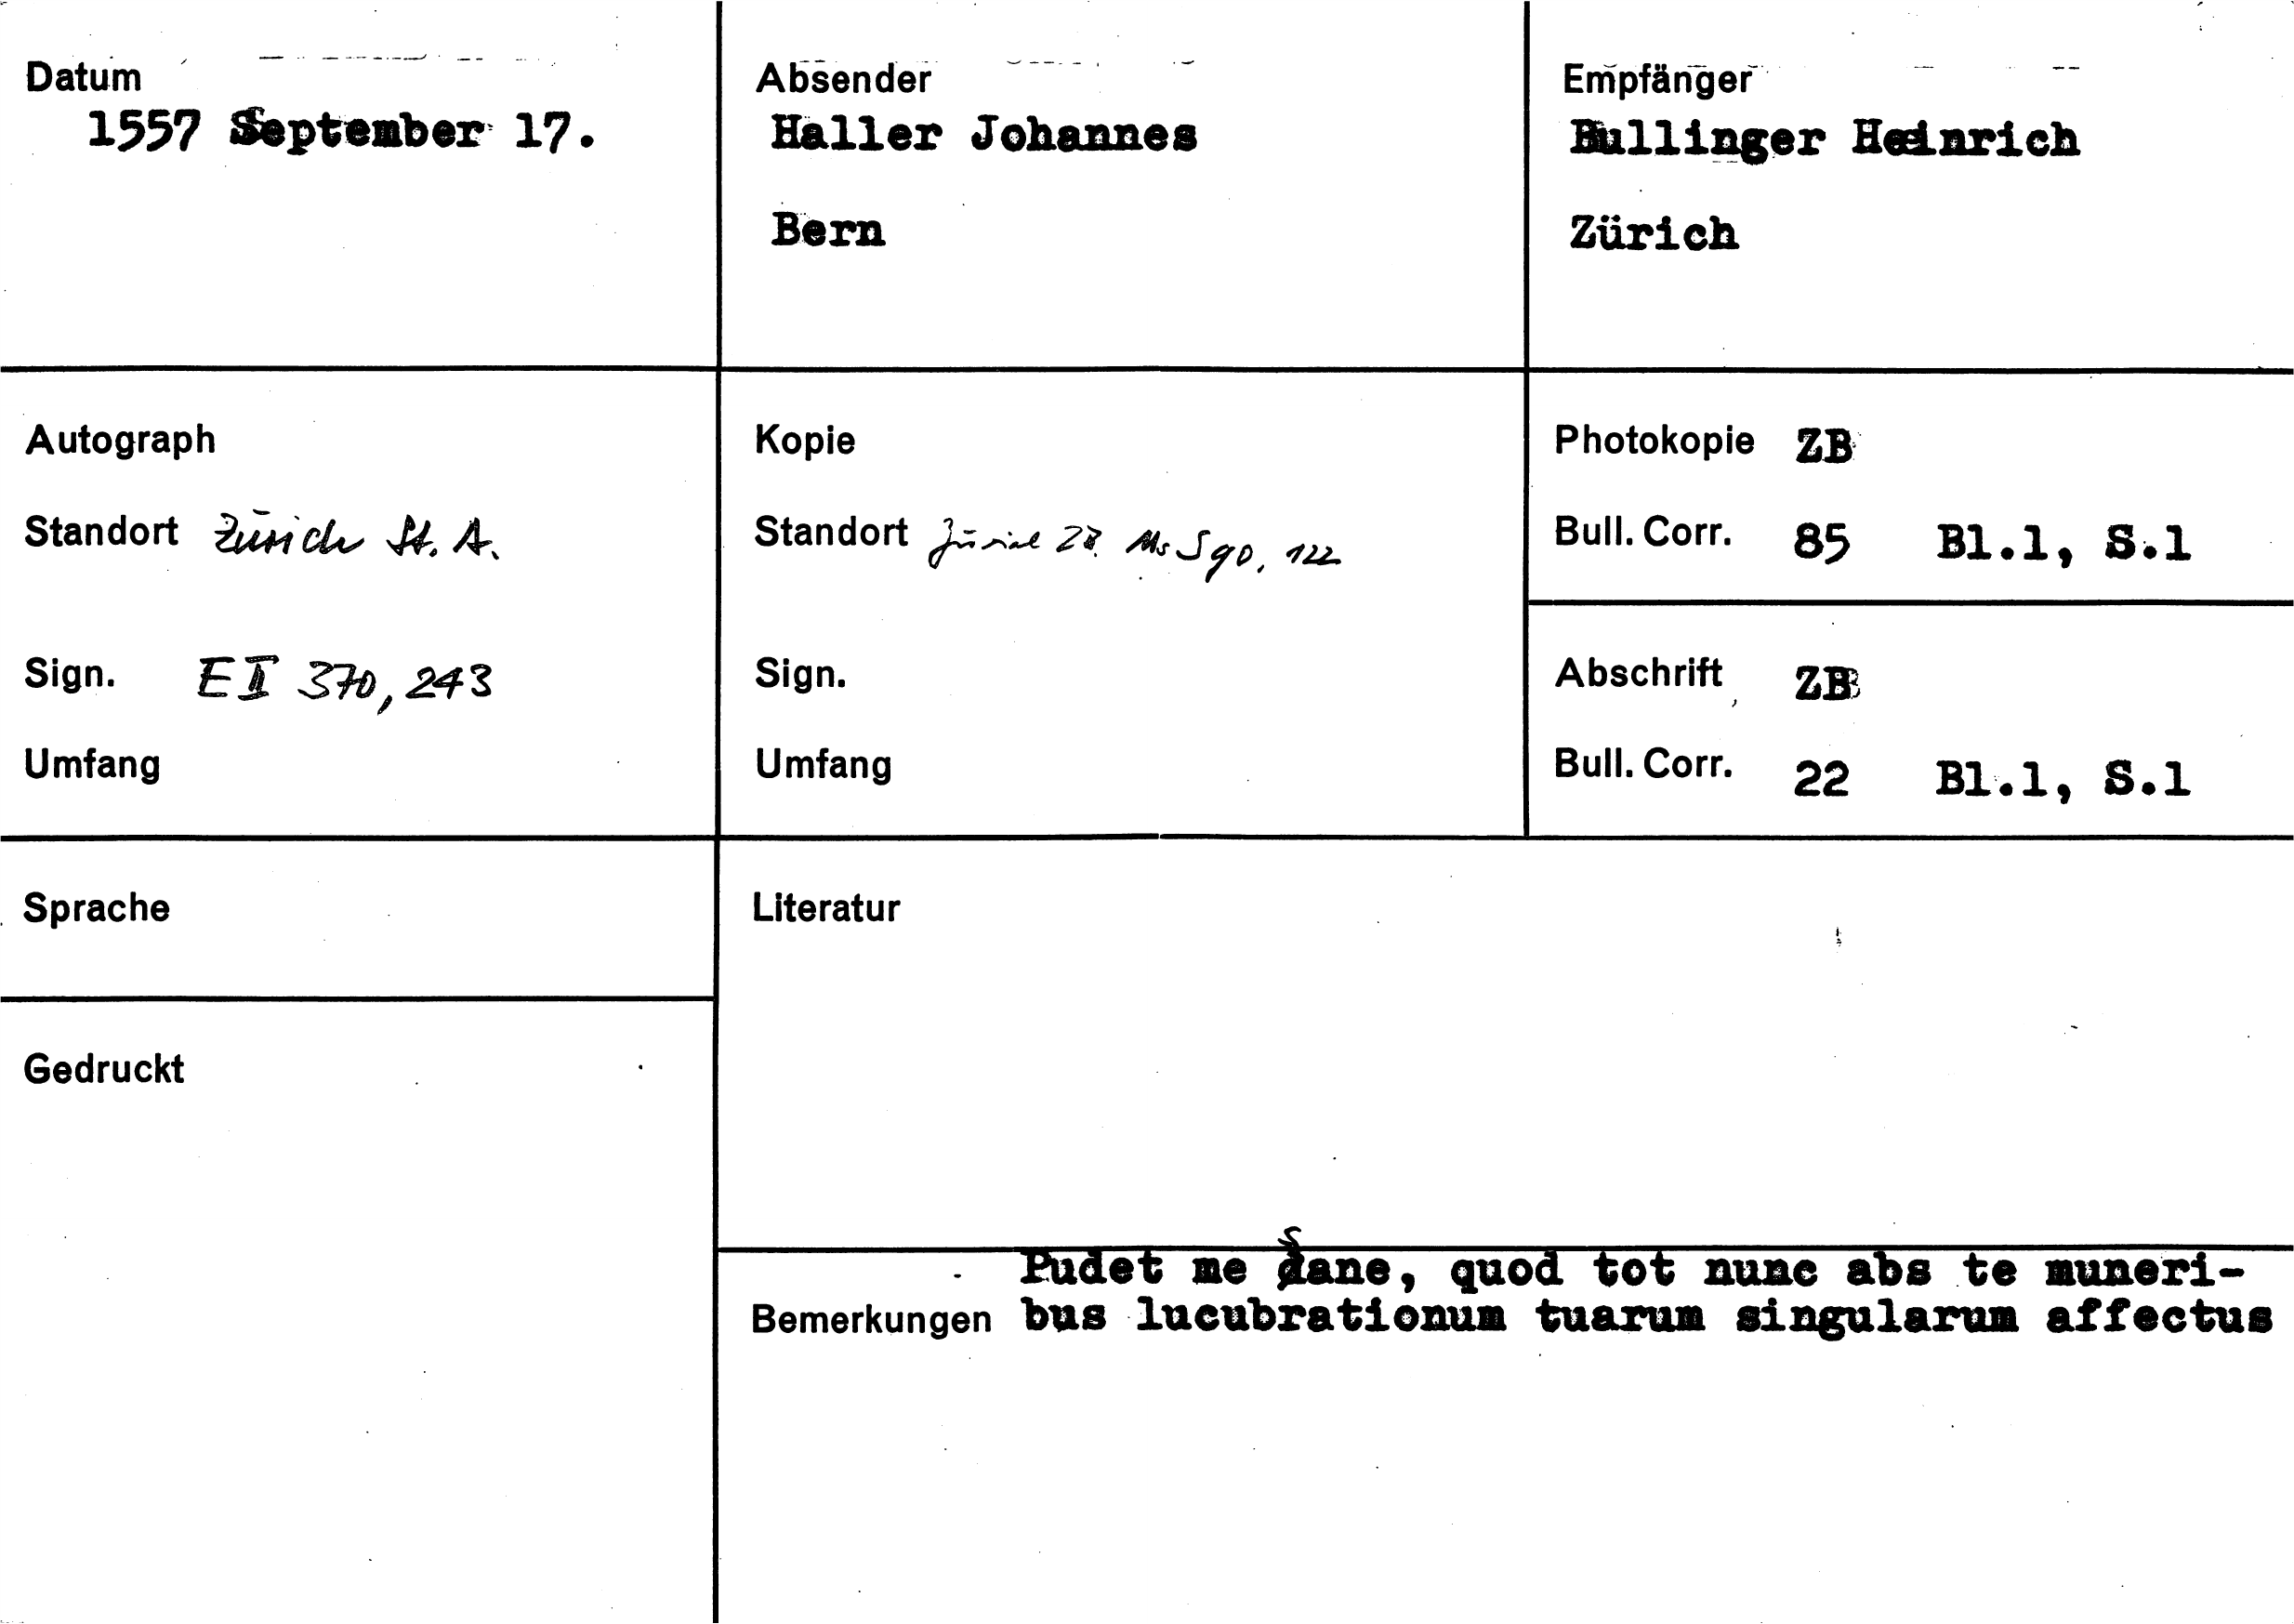 Datum
1557 September 17.
Absender
Haller Johannes
Bern
Empfänger
Bullinger Heinrich
Zürich
Autograph
Standort Zürich St. A.
Sign. E II 370, 243
Umfang
Kopie
Standort Zürich ZB. Ms S 90, 122
Sign.
Umfang
Photokopie ZB
Bull. Corr. 85 Bl.1, S.1
Abschrift ZB
Bull. Corr. 22 Bl.1, S.1
Sprache
Gedruckt
Literatur
Pudet me sane, quod tot nunc abs te muneri-
Bemerkungen bus lucubrationum tuarum singularum affectus